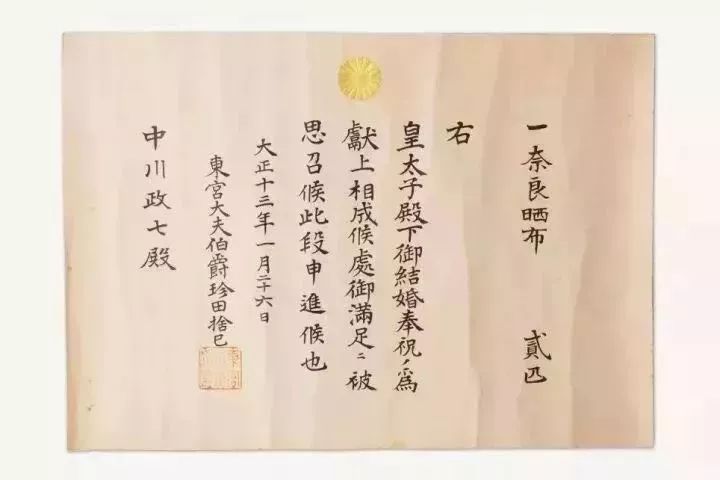 一奈良晒布　貳匹
右
皇太子殿下御結婚奉祝ノ爲
獻上相成候處御滿足ニ被
思召候此段申進候也
大正十三年一月二十六日
東宮大夫伯爵珍田捨巳
中川政七殿